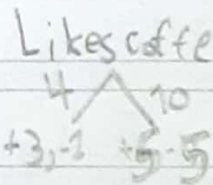 Likes coffe
4 10
+3,-1 +5-5